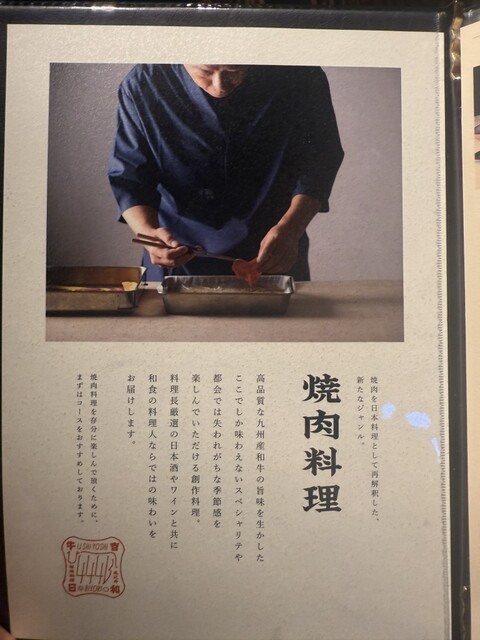 焼肉を日本料理として再解釈した、
新たなジャンル。
焼肉料理
高品質な九州産和牛の旨味を生かした
ここでしか味わえないスペシャリテや
都会では失われがちな季節感を
楽しんでいただける創作料理。
料理長厳選の日本酒やワインと共に
和食の料理人ならではの味わいを
お届けします。
焼肉料理を存分に楽しんで頂くために、
まずはコースをおすすめしております。
USHIYOSHI